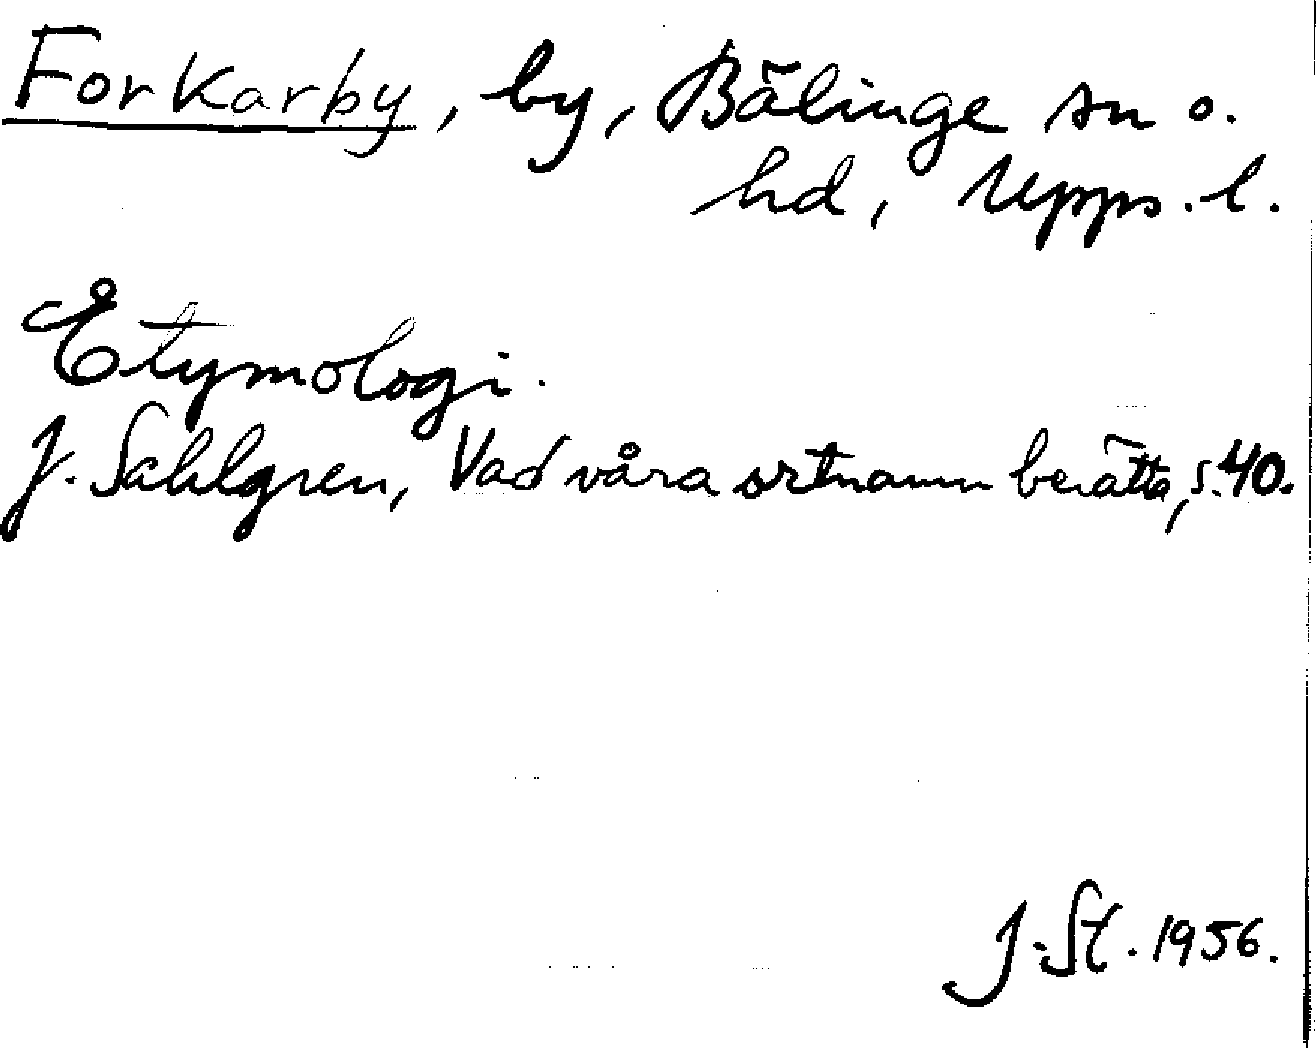 Forkarby, by, Bälinge sn o.
hd, Upps. l.
Etymologi.
J. Sahlgren, Vad våra ortnamn berätta, s. 40.
J. St. 1956.